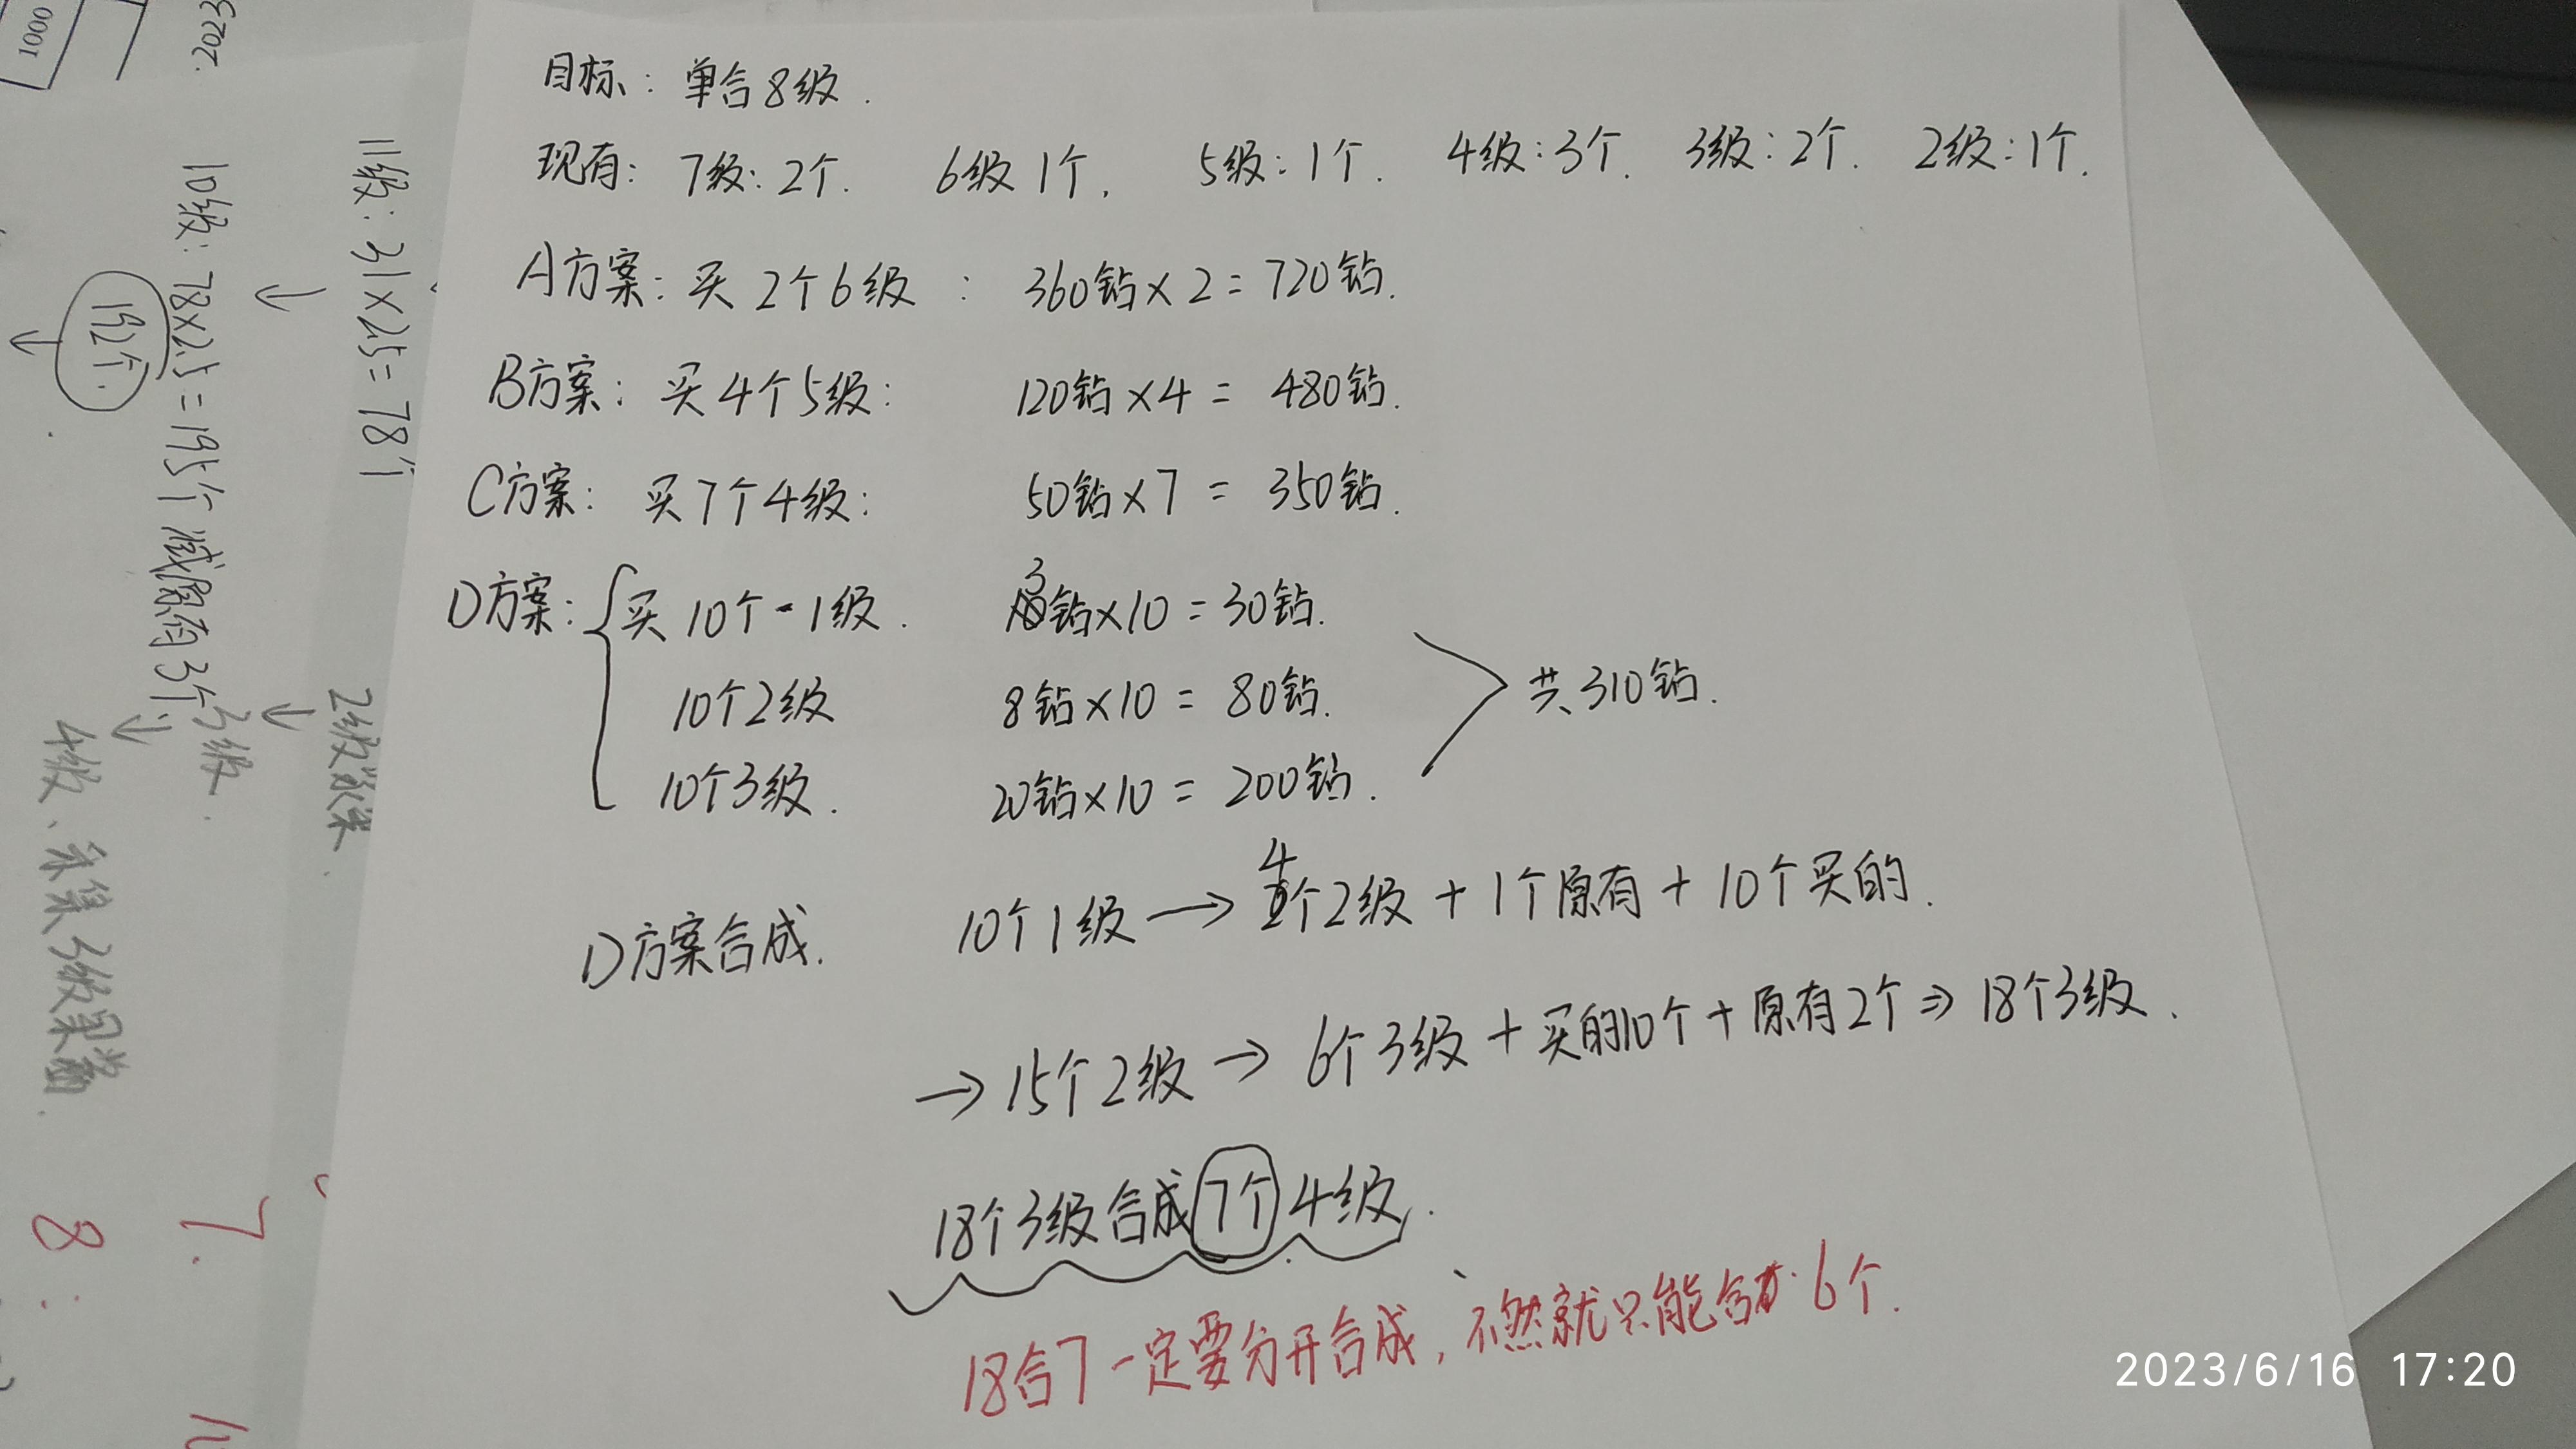 目标：单合8级.
现有：7级：2个. 6级 1个. 5级：1个. 4级：3个. 3级：2个. 2级：1个.
A方案：买 2个6级： 360钻×2=720钻.
B方案：买4个5级： 120钻×4 = 480钻.
C方案：买7个4级： 50钻×7 = 350钻.
D方案：买10个-1级. 3钻×10 =30钻.
10个2级 8钻×10 = 80钻.
10个3级. 20钻×10 = 200钻.
共310钻.
D方案合成. 10个1级→4个2级 + 1个原有 + 10个买的.
→15个2级→ 6个3级 + 买的10个 + 原有2个⇒ 18个3级.
18个3级合成7个4级.
18合7一定要分开合成，不然就只能合成6个.
11级：31×2.5=78个
10级：78×2.5=195个减原有3个
192个.
2级
3级.
4级、采集3级果
7.
8：
1000
2023
2023/6/16 17:20